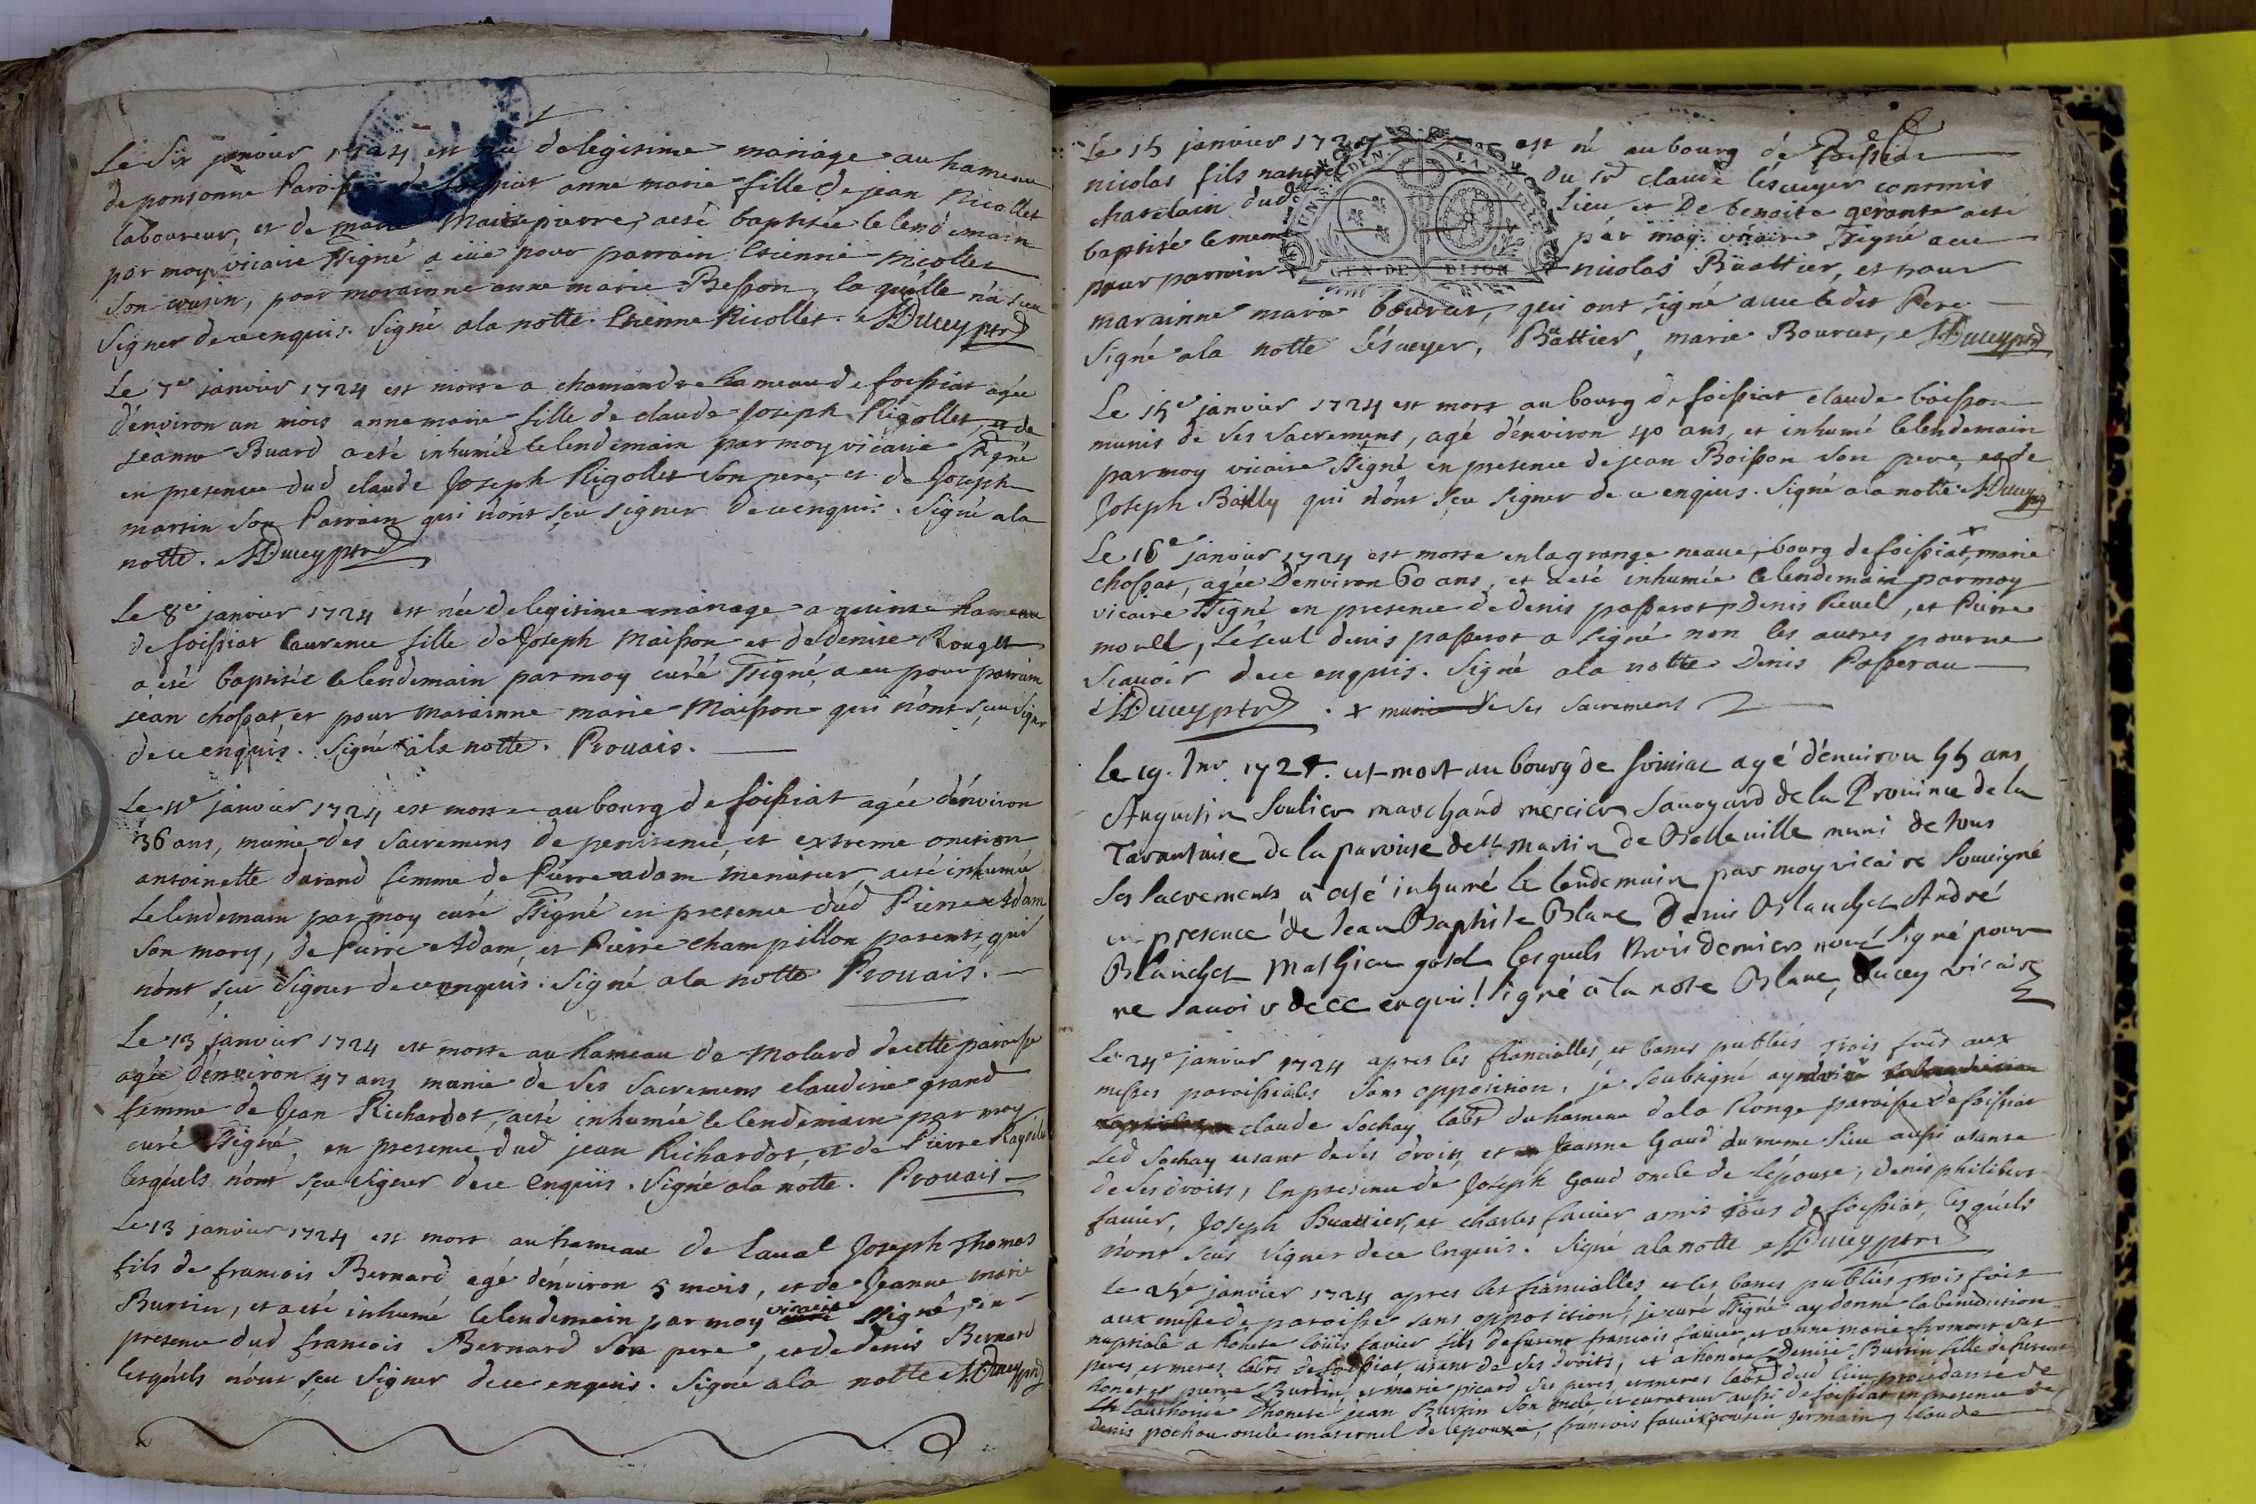 Le Six janvier 1724 est née de legitime mariage au hameau
de ponsonne Paroisse de foissiat anne marie fille de jean Nicollet
laboureur, et de marie Marie pierre, a eté baptisée le lendemain
par moy vicaire ssigné a eüe pour parrain Etienne Nicollet
Son cousin, pour marainne anne marie Besson, la quélle n'a sceu
Signer de ce enquis. Signé a la notte. Etienne Nicollet. Ducey ptre
Le 7e janvier 1724 est morte a chamandre hameau de foissiat agée
d'énviron un mois anne marie fille de claude Joseph Rigollet, et de
jeanne Buard a eté inhumée le lendemain par moy vicaire ssigné
en presence dud claude Joseph Rigollet son pere, et de Joseph
martin son Parrain qui n'ont sçu signer de ce enquis. Signé a la
notte. Ducey ptre
Le 8e janvier 1724 est née de legitime mariage a quinte hameau
de foissiat laurence fille de Joseph Maisson et de denise Rouget
a eté baptisée le lendemain par moy curé ssigné a eu pour parrain
jean chossat et pour marainne marie Maisson qui n'ont sçeu signer
de ce enquis. Signé a la notte. Prouais.
Le 11e janvier 1724 est morte au bourg de foissiat agée d'énviron
36 ans, munie des Sacremens de penitence, et extreme onction
antoinette durand femme de Pierre adam menuisier a eté inhumée
Le lendemain par moy curé ssigné en presence dud Pierre Adam
son mary, de Pierre Adam, et Pierre champillon parents, qui
n'ont sçu signer de ce enquis. Signé a la notte Prouais.
Le 13 janvier 1724 est morte au hameau de Molard de cette paroisse
agée d'énviron 47 ans munie de Ses Sacremens claudine grand
femme de Jean Richardot, a eté inhumée le lendemain par moy
curé ssigné en presence dud jean Richardot, et de Pierre
lesquéls n'ont sçu signer de ce enquis. Signé a la notte. Prouais
Le 13 janvier 1724 est mort au hameau de Laual Joseph Thomas
fils de francois Bernard agé d'énviron 5 mois, et de Jeanne marie
Burtin, et a eté inhumé le lendemain par moy vicaire ssigné, en
presence dud francois Bernard Son pere, et de denis Bernard
lesquéls n'ont sçu signer de ce enquis. Signé a la notte Ducey ptre
Le 15 janvier 1724 est né au bourg de foissiat
nicolas fils naturel du Sr claude lésuyer commis
chatelain dud lieu et De benoite gerante a eté
baptisé le meme par moy vicaire ssigné a eu
pour parrain nicolas Büattier, et pour
UN DEN LA FEUILLE
GEN DE DIJON
marainne marie bourut, qui ont signé auec le dit Pere
Signé a la notte lésuyer, Büattier, marie Bourut, Ducey ptre
Le 15e janvier 1724 est mort au bourg de foissiat claude boisson
munis de Ses Sacremens, agé d'énviron 40 ans, et inhumé le lendemain
par moy vicaire ssigné en presence de jean Boisson son pere, et de
Joseph Bailly qui n'ont sçu signer de ce enquis. Signé a la notte Ducey
Le 16e janvier 1724 est morte en la grange neuue, bourg de foissiat, x marie
chossat, agée D'énviron 60 ans, et a eté inhumée le lendemain par moy
vicaire ssigné en presence de denis passerot, Denis Reuel, et Pierre
morell, Le seul denis passerot a signé non les autres pour ne
Sçauoir de ce enquis. Signé a la notte Denis Passerau
Ducey ptre. x munie de ses sacremens
le 19. Jnv. 1724. est mort au bourg de foissiat agé d'énuiron 55 ans
Augustin Soulier marchand mercier Sauoyard de la Prouince de la
Tarantaise de la paroisse de St Martin de Belleuille muni de tous
Ses Sacrements a été inhumé le lendemain par moy vicaire Soussigné
en presence de Jean Baptiste Blanc Denis Blanchet André
Blanchet Mathieu lesquels trois derniers n'ont signé pour
ne Sauoir de ce enquis! Signé à la note Blanc, Ducey vicaire
Le 24e janvier 1724 apres les fiancialles, et bancs publiés trois fois aux
messes paroissiales sans opposition, je soubsigné ay
claude Sochay labr du hameau de la Ronge paroisse de foissiat
Led Sochay usant de Ses droits, et Jeanne Gaud du meme lieu aussi usante
de Ses droits, En presence de Joseph Gaud oncle de Lépouse, denis philibert
fauier, Joseph Buattier, et charles fauier amis tous de foissiat, les quéls
n'ont sceus signer de ce Enquis. Signé a la notte Ducey ptre
Le 25e janvier 1724 apres les fiancialles, et les bancs publiés trois fois
aux messe de paroisse sans opposition, je curé ssigné ay donné la benediction
nuptiale a honete loüis fauier fils de furent francois fauier et anne marie fromont ses
peres, et meres labrs de foissiat usant de Ses droits, et a honete Denise Burtin fille de furent
honetes pierre Burtin, et marie picard ses peres et meres labrs dud lieu procedante de
L'authorité D'honete jean Burtin Son oncle et curateur aussi de foissiat en presence de
denis pochon oncle maternel de lépouse, francois fauier cousin germain, Claude